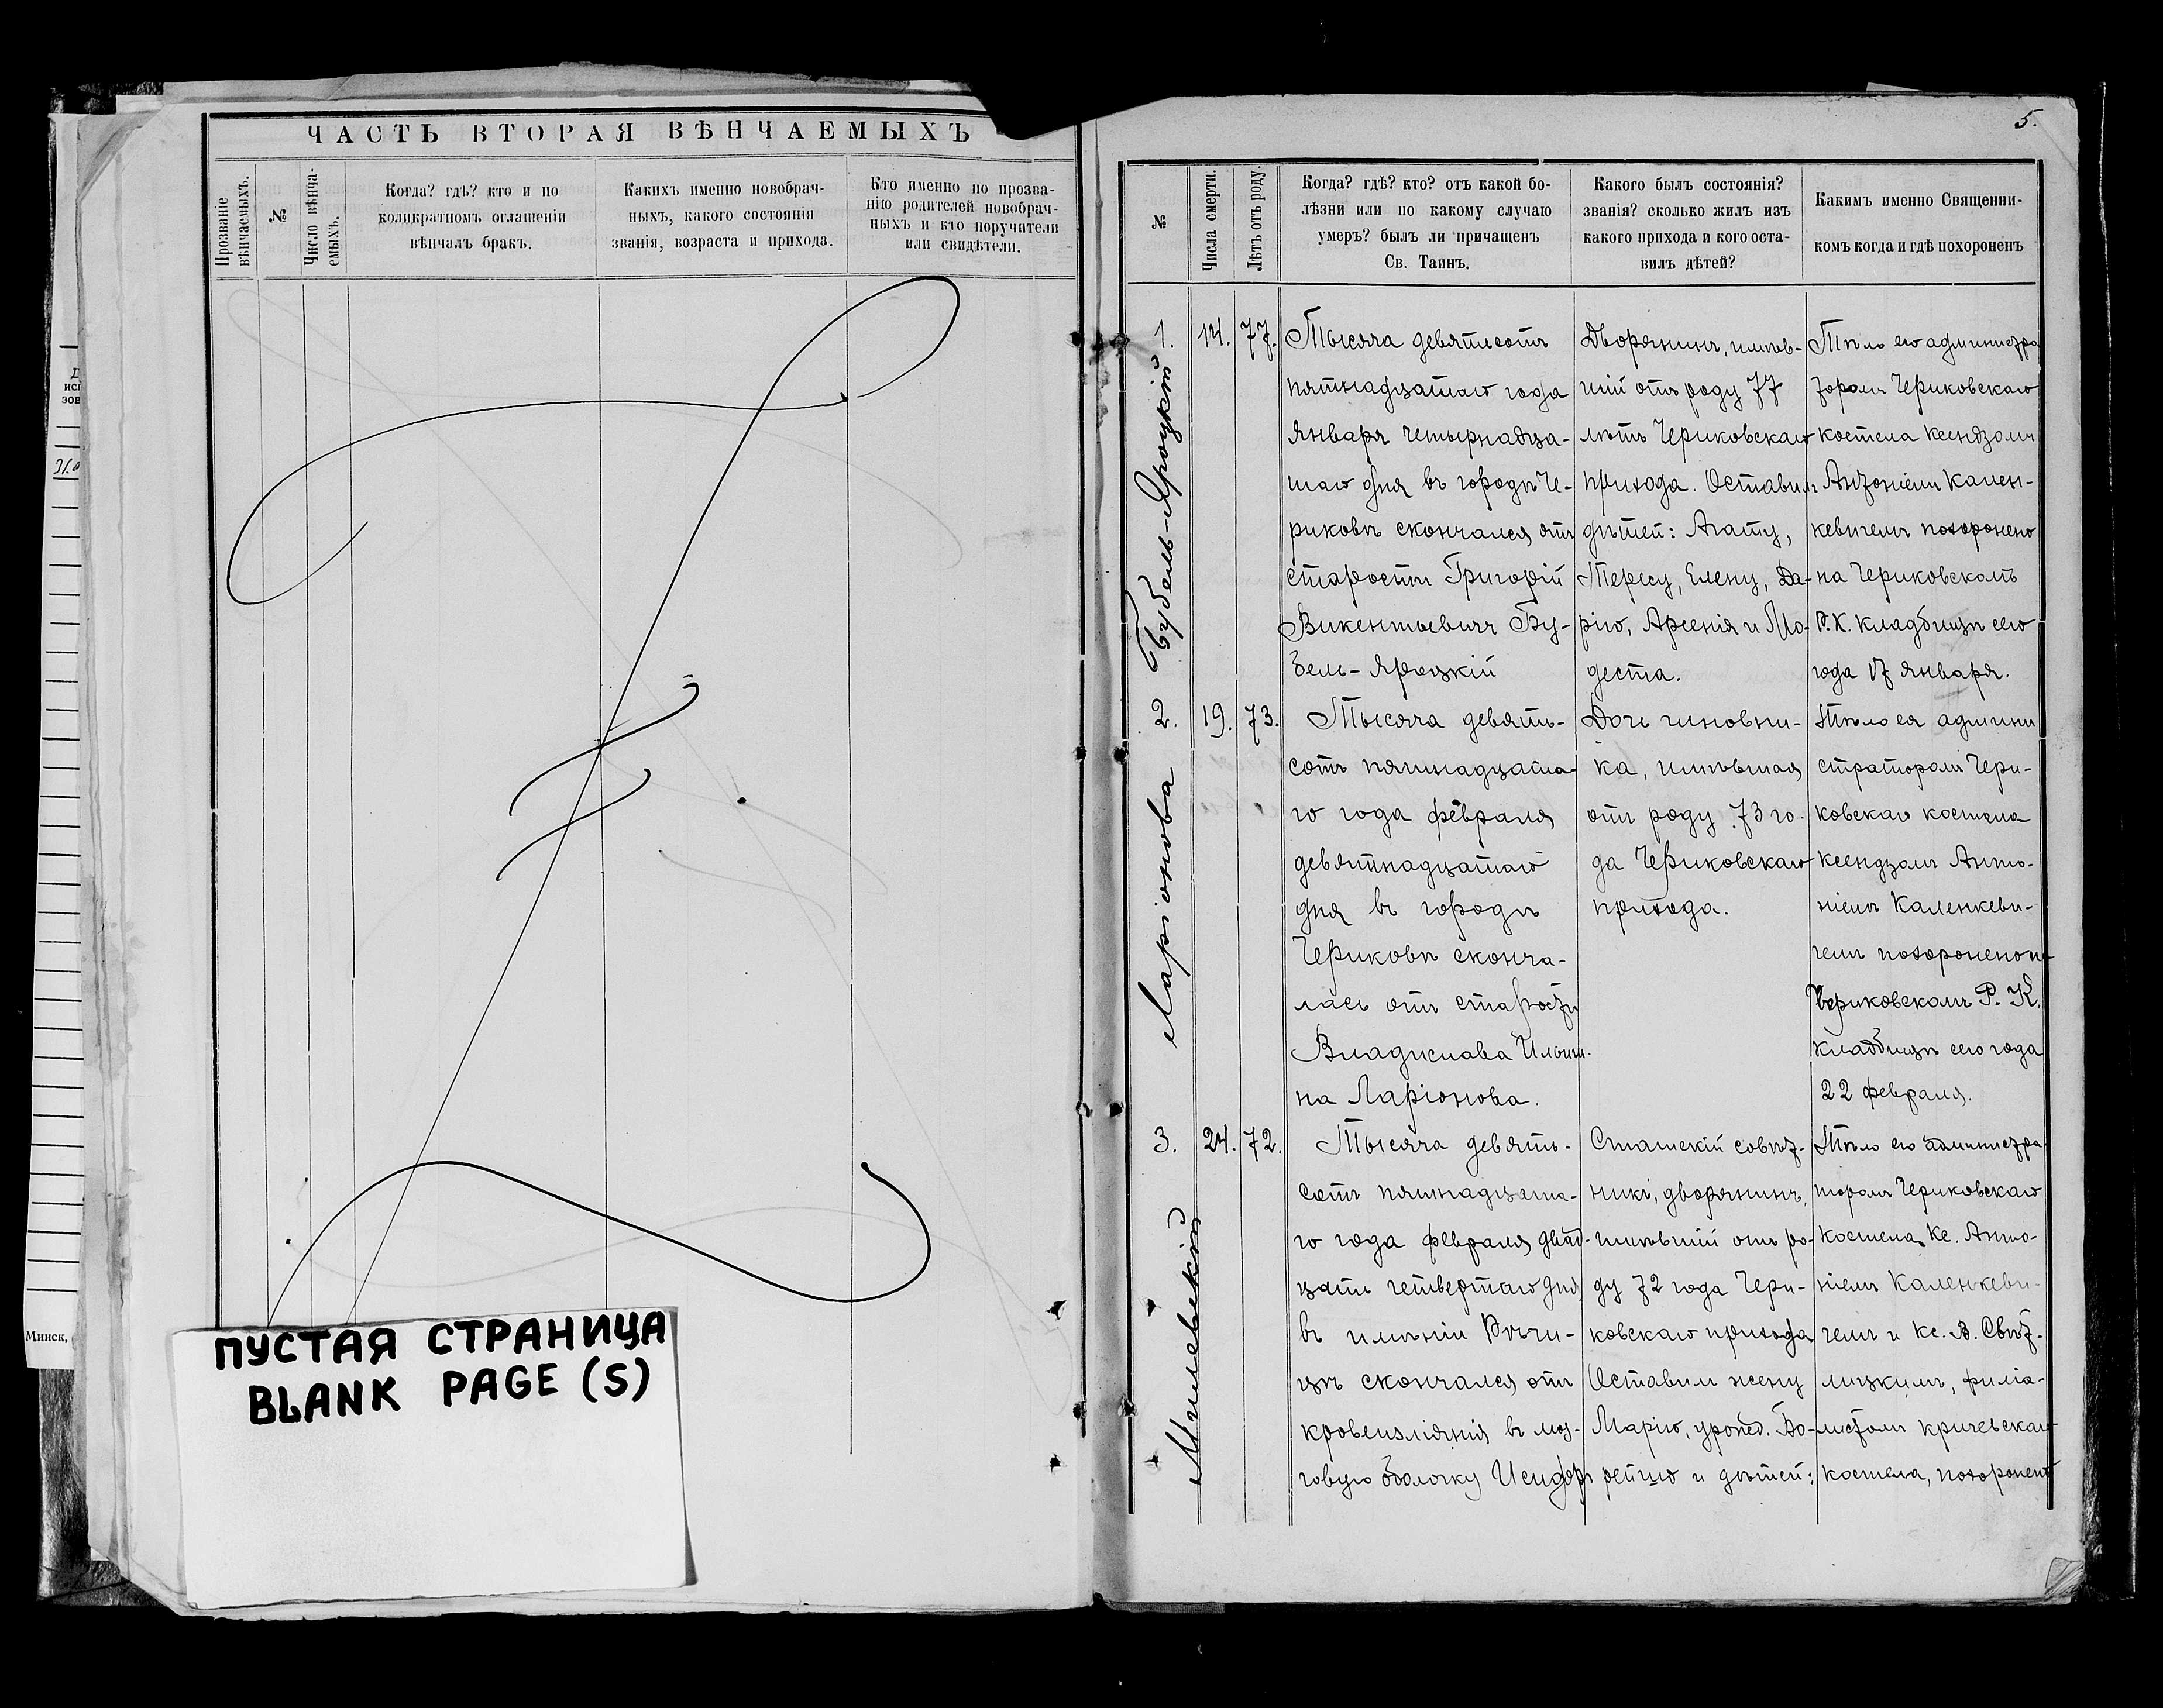 ЧАСТЬ ВТОРАЯ ВѢНЧАЕМЫХЪ
Прозваніе вѣнчаемыхъ.
№
Число вѣнчаемыхъ.
Когда? гдѣ? кто и по
коликратномъ оглашеніи
вѣнчалъ бракъ.
Какихъ именно новобрач-
ныхъ, какого состоянія
званія, возраста и прихода.
Кто именно по прозва-
нію родителей новобрач-
ныхъ и кто поручители
или свидѣтели.
ПУСТАЯ СТРАНИЦА
BLANK PAGE (S)
Минск,
5.
№
Числа смерти.
Лѣтъ отъ роду.
Когда? гдѣ? кто? отъ какой бо-
лѣзни или по какому случаю
умеръ? былъ ли причащенъ
Св. Таинъ.
Какого былъ состоянія?
званія? сколько жилъ изъ
какого прихода и кого оста-
вилъ дѣтей?
Какимъ именно Священни-
комъ когда и гдѣ похороненъ
1.
Бубель-Яроцкій
14.
77.
Тысяча девятьсотъ
пятнадцатаго года
Января четырнадца-
таго дня въ городѣ Че-
риковѣ скончался отъ
старости Григорій
Викентьевичъ Бу-
бель-Яроцкій
Дворянинъ, имѣв-
шій отъ роду 77
лѣтъ Чериковскаго
прихода. Оставилъ
дѣтей: Агату,
Тересу, Елену, Да-
рію, Арсенія и Мо-
деста.
Тѣло его администра
торомъ Чериковскаго
костела Ксендзомъ
Антоніемъ Кален-
кевичемъ похоронено
на Чериковскомъ
Р.К. кладбищѣ сего
года 17 Января.
2.
Ларіонова
19.
73.
Тысяча девять-
сотъ пятнадцата-
го года февраля
девятнадцатаго
дня въ городѣ
Чериковѣ сконча-
лась отъ старости
Владислава Ильин-
на Ларіонова.
Дочь чиновни-
ка, имѣвшая
отъ роду 73 го-
да Чериковскаго
прихода.
Тѣло ея админи
страторомъ Чери-
ковскаго костела
Ксендзомъ Анто-
ніемъ Каленкеви-
чемъ похоронено на
Чериковскомъ Р. К.
кладбищѣ сего года
22 февраля.
3.
Милевскій
24.
72.
Тысяча девять-
сотъ пятнадцата-
го года февраля двад-
цать четвертаго дня
въ имѣніи Рѣчи-
цѣ скончался отъ
кровеизліянія въ моз-
говую оболочку Исидоръ
Статскій совѣт-
никъ, дворянинъ,
имѣвшій отъ ро-
ду 72 года Чери-
ковскаго прихода
Оставилъ жену
Марію, урожд. Бо-
рейшо и дѣтей:
Тѣло его администра
торомъ Чериковскаго
костела Кс. Анто-
ніемъ Каленкеви-
чемъ и Кс. В. Свѣт-
лицкимъ, филіа-
листомъ кричевскаго
костела, похоронено